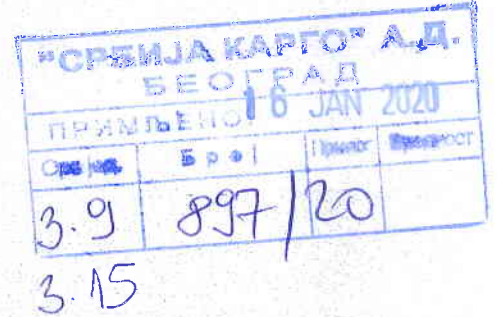 "СРБИЈА КАРГО" А.Д.
БЕОГРАД
ПРИМЉЕНО 16 JAN 2020
Орг. јед. Број Прилог Вредност
3.9 897/20
3.15